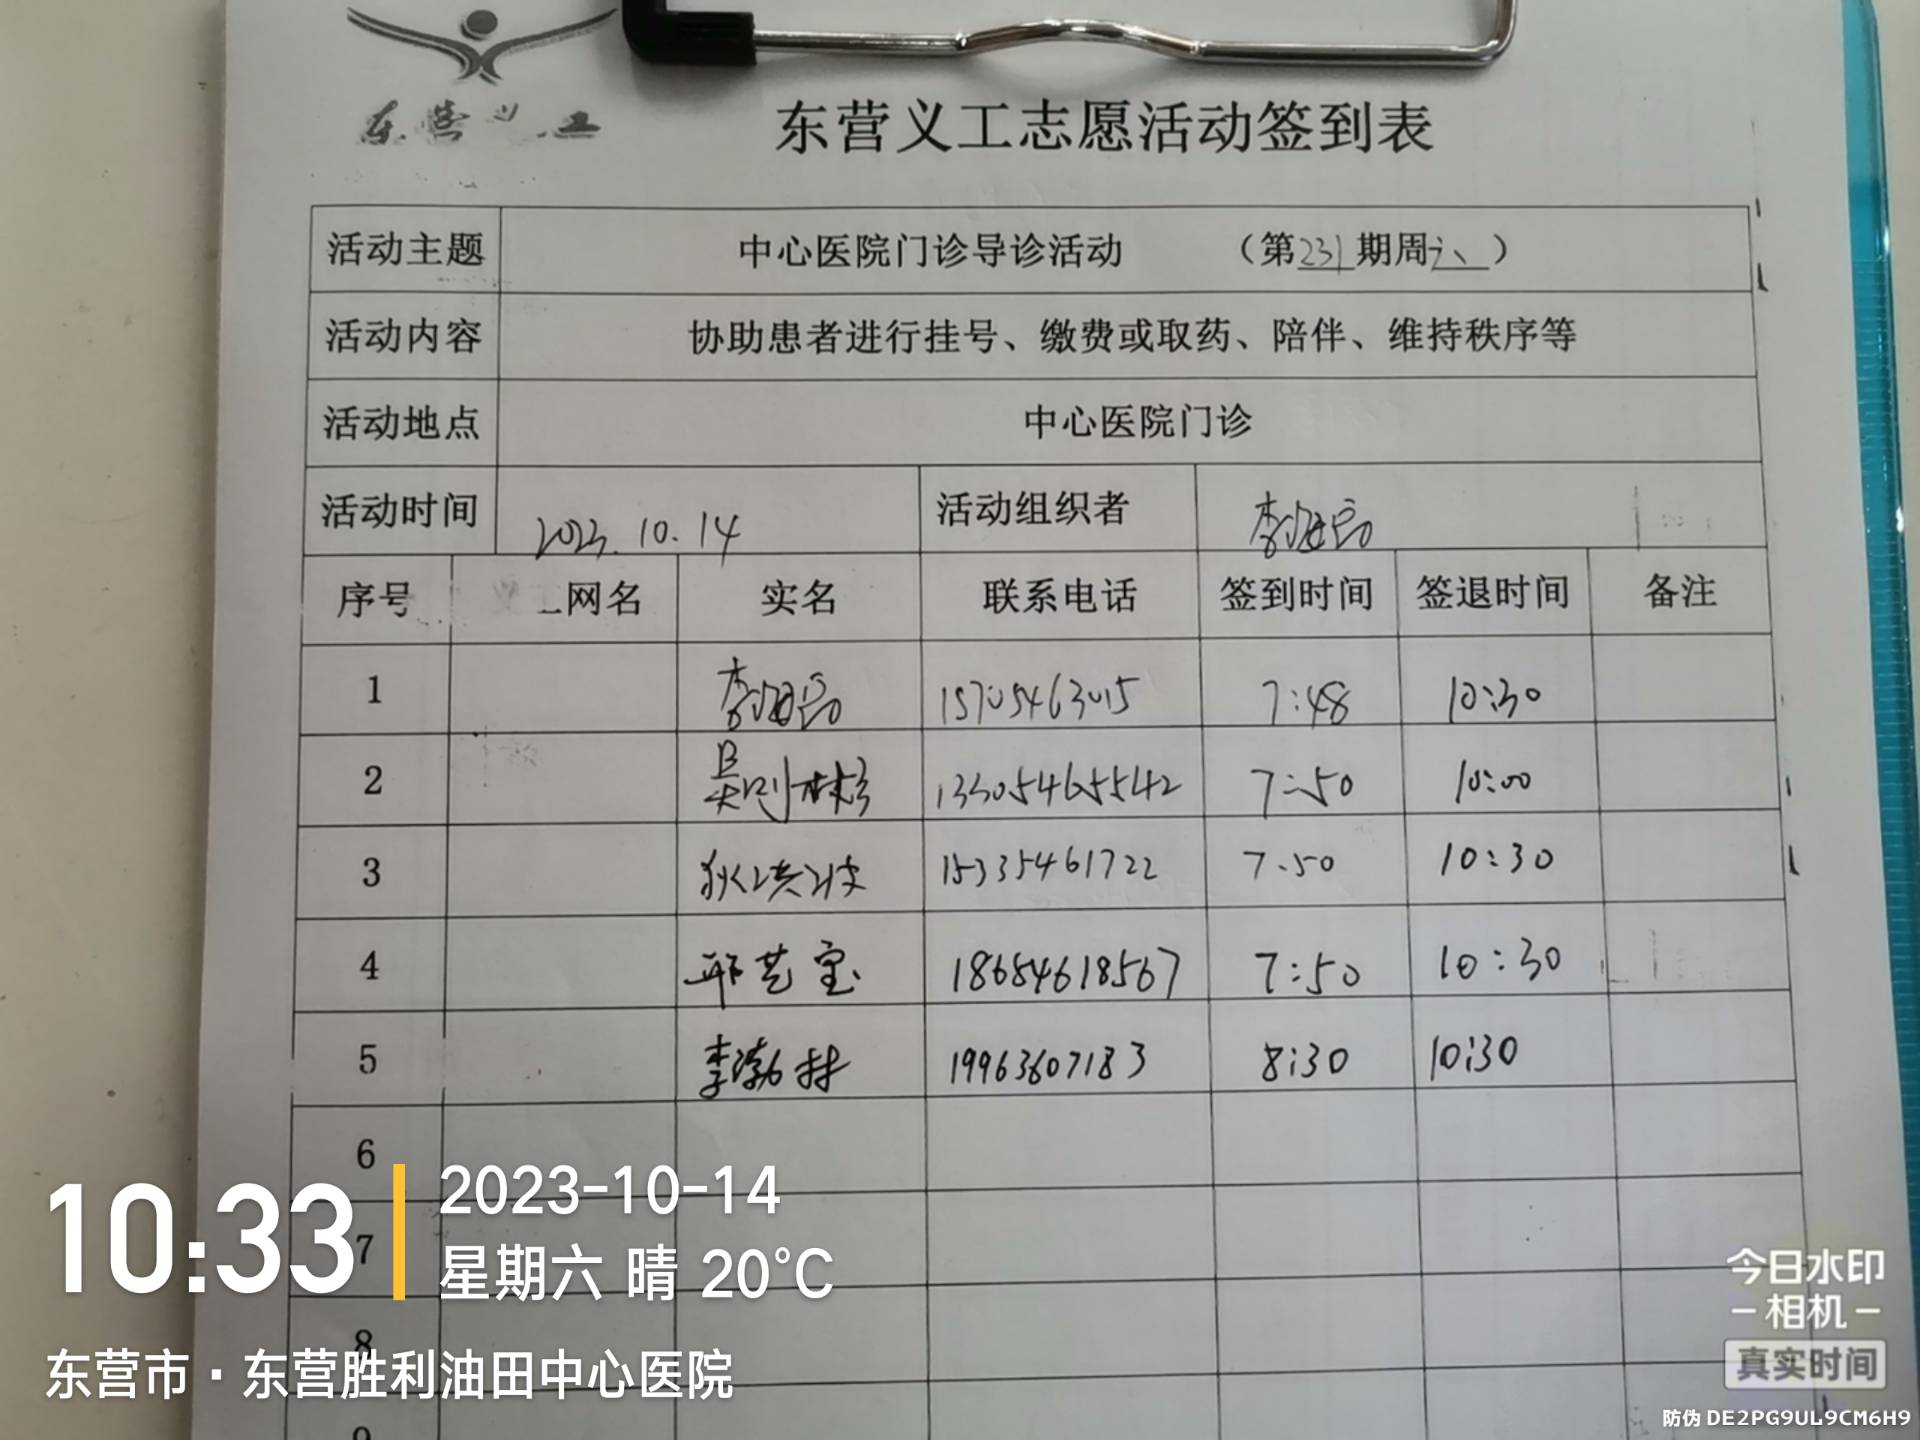 东营义工
东营义工志愿活动签到表
活动主题 中心医院门诊导诊活动 （第231期周六）
活动内容 协助患者进行挂号、缴费或取药、陪伴、维持秩序等
活动地点 中心医院门诊
活动时间 2023.10.14 活动组织者 李
序号 网名 实名 联系电话 签到时间 签退时间 备注
1 李 15705463015 7:48 10:30
2 吴 13305465542 7:50 10:00
3 狄洪波 15335461722 7:50 10:30
4 邢艺宝 18654618567 7:50 10:30
5 李渤林 19963607183 8:30 10:30
6
7
8
9
10:33
2023-10-14
星期六 晴 20°C
东营市·东营胜利油田中心医院
今日水印
相机
真实时间
防伪 DE2PG9UL9CM6H9